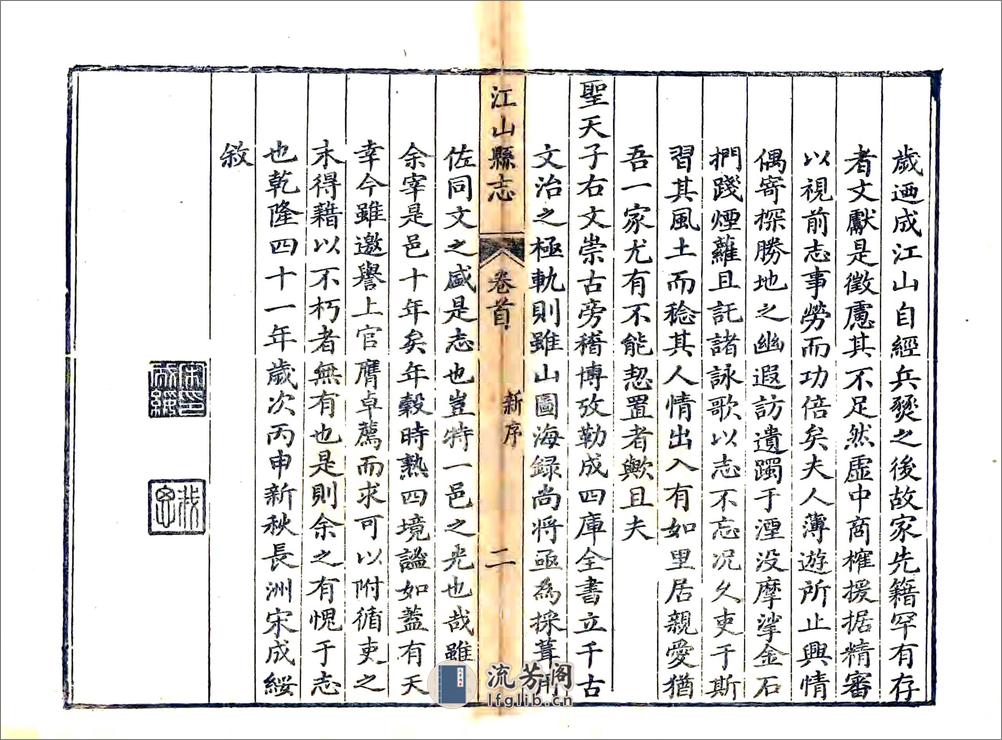 歲迺成江山自經兵燹之後故家先籍罕有存
者文獻是徵慮其不足然虛中商榷援据精審
以視前志事勞而功倍矣夫人薄遊所止興情
偶寄探勝地之幽遐訪遺躅于湮没摩挲金石
捫踐煙蘿且託諸詠歌以志不忘况久吏于斯
習其風土而稔其人情出入有如里居親愛猶
吾一家尤有不能恝置者歟且夫
聖天子右文崇古旁稽博攷勒成四庫全書立千古
文治之極軌則雖山圖海録尚将亟為採葺用
江山縣志
卷首
新序
二
佐同文之盛是志也豈特一邑之光也哉雖
余宰是邑十年矣年穀時熟四境謐如蓋有天
幸今雖邀譽上官膺卓薦而求可以附循吏之
末得藉以不朽者無有也是則余之有愧于志
也乾隆四十一年歲次丙申新秋長洲宋成綏
敘
流芳阁
lfglib.cn